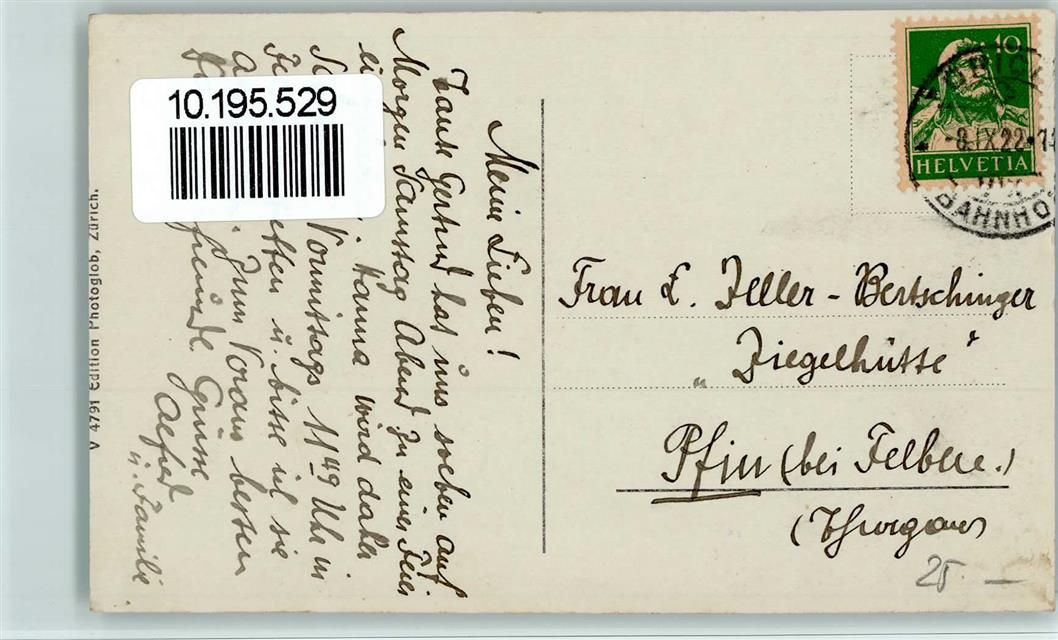 10.195.529
Meine Lieben!
Tante Gertrud hat uns soeben auf
Morgen Samstag Abend zu einer Feier
Hanna wird daher
Vormittags 11 49 Uhr in
u. bitte ich sie
Zum Voraus besten
freundl. Grüsse
Alfred
u. Familie
V 4791 Edition Photoglob, Zürich.
10
HELVETIA
-8.IX.22
BAHNHO
Frau L. Zeller-Bertschinger
"Ziegelhütte"
Pfin (bei Felben.)
(Thurgau)
25 —